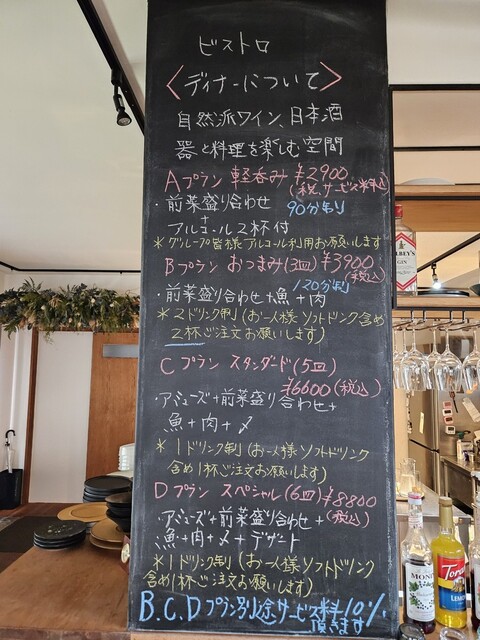 ビストロ
<ディナーについて>
自然派ワイン、日本酒
器と料理を楽しむ空間
Aプラン 軽呑み ¥2900
(税、サービス料込)
・前菜盛り合わせ 90分制
+
アルコール2杯付
*グループ皆様アルコール利用お願いします
Bプラン おつまみ(3皿)¥3900
(税込)
120分制
・前菜盛り合わせ+魚+肉
*2ドリンク制(お一人様ソフトドリンク含め
2杯ご注文お願いします)
Cプラン スタンダード(5皿)
¥6600(税込)
・アミューズ+前菜盛り合わせ+
魚+肉+〆
*1ドリンク制(お一人様ソフトドリンク
含め1杯ご注文お願いします)
Dプラン スペシャル(6皿)¥8800
(税込)
・アミューズ+前菜盛り合わせ+
魚+肉+〆+デザート
*1ドリンク制(お一人様ソフトドリンク
含め1杯ご注文お願いします)
B.C.Dプラン別途サービス料10%
頂きます
GIN
MONI
Tora
LEMO